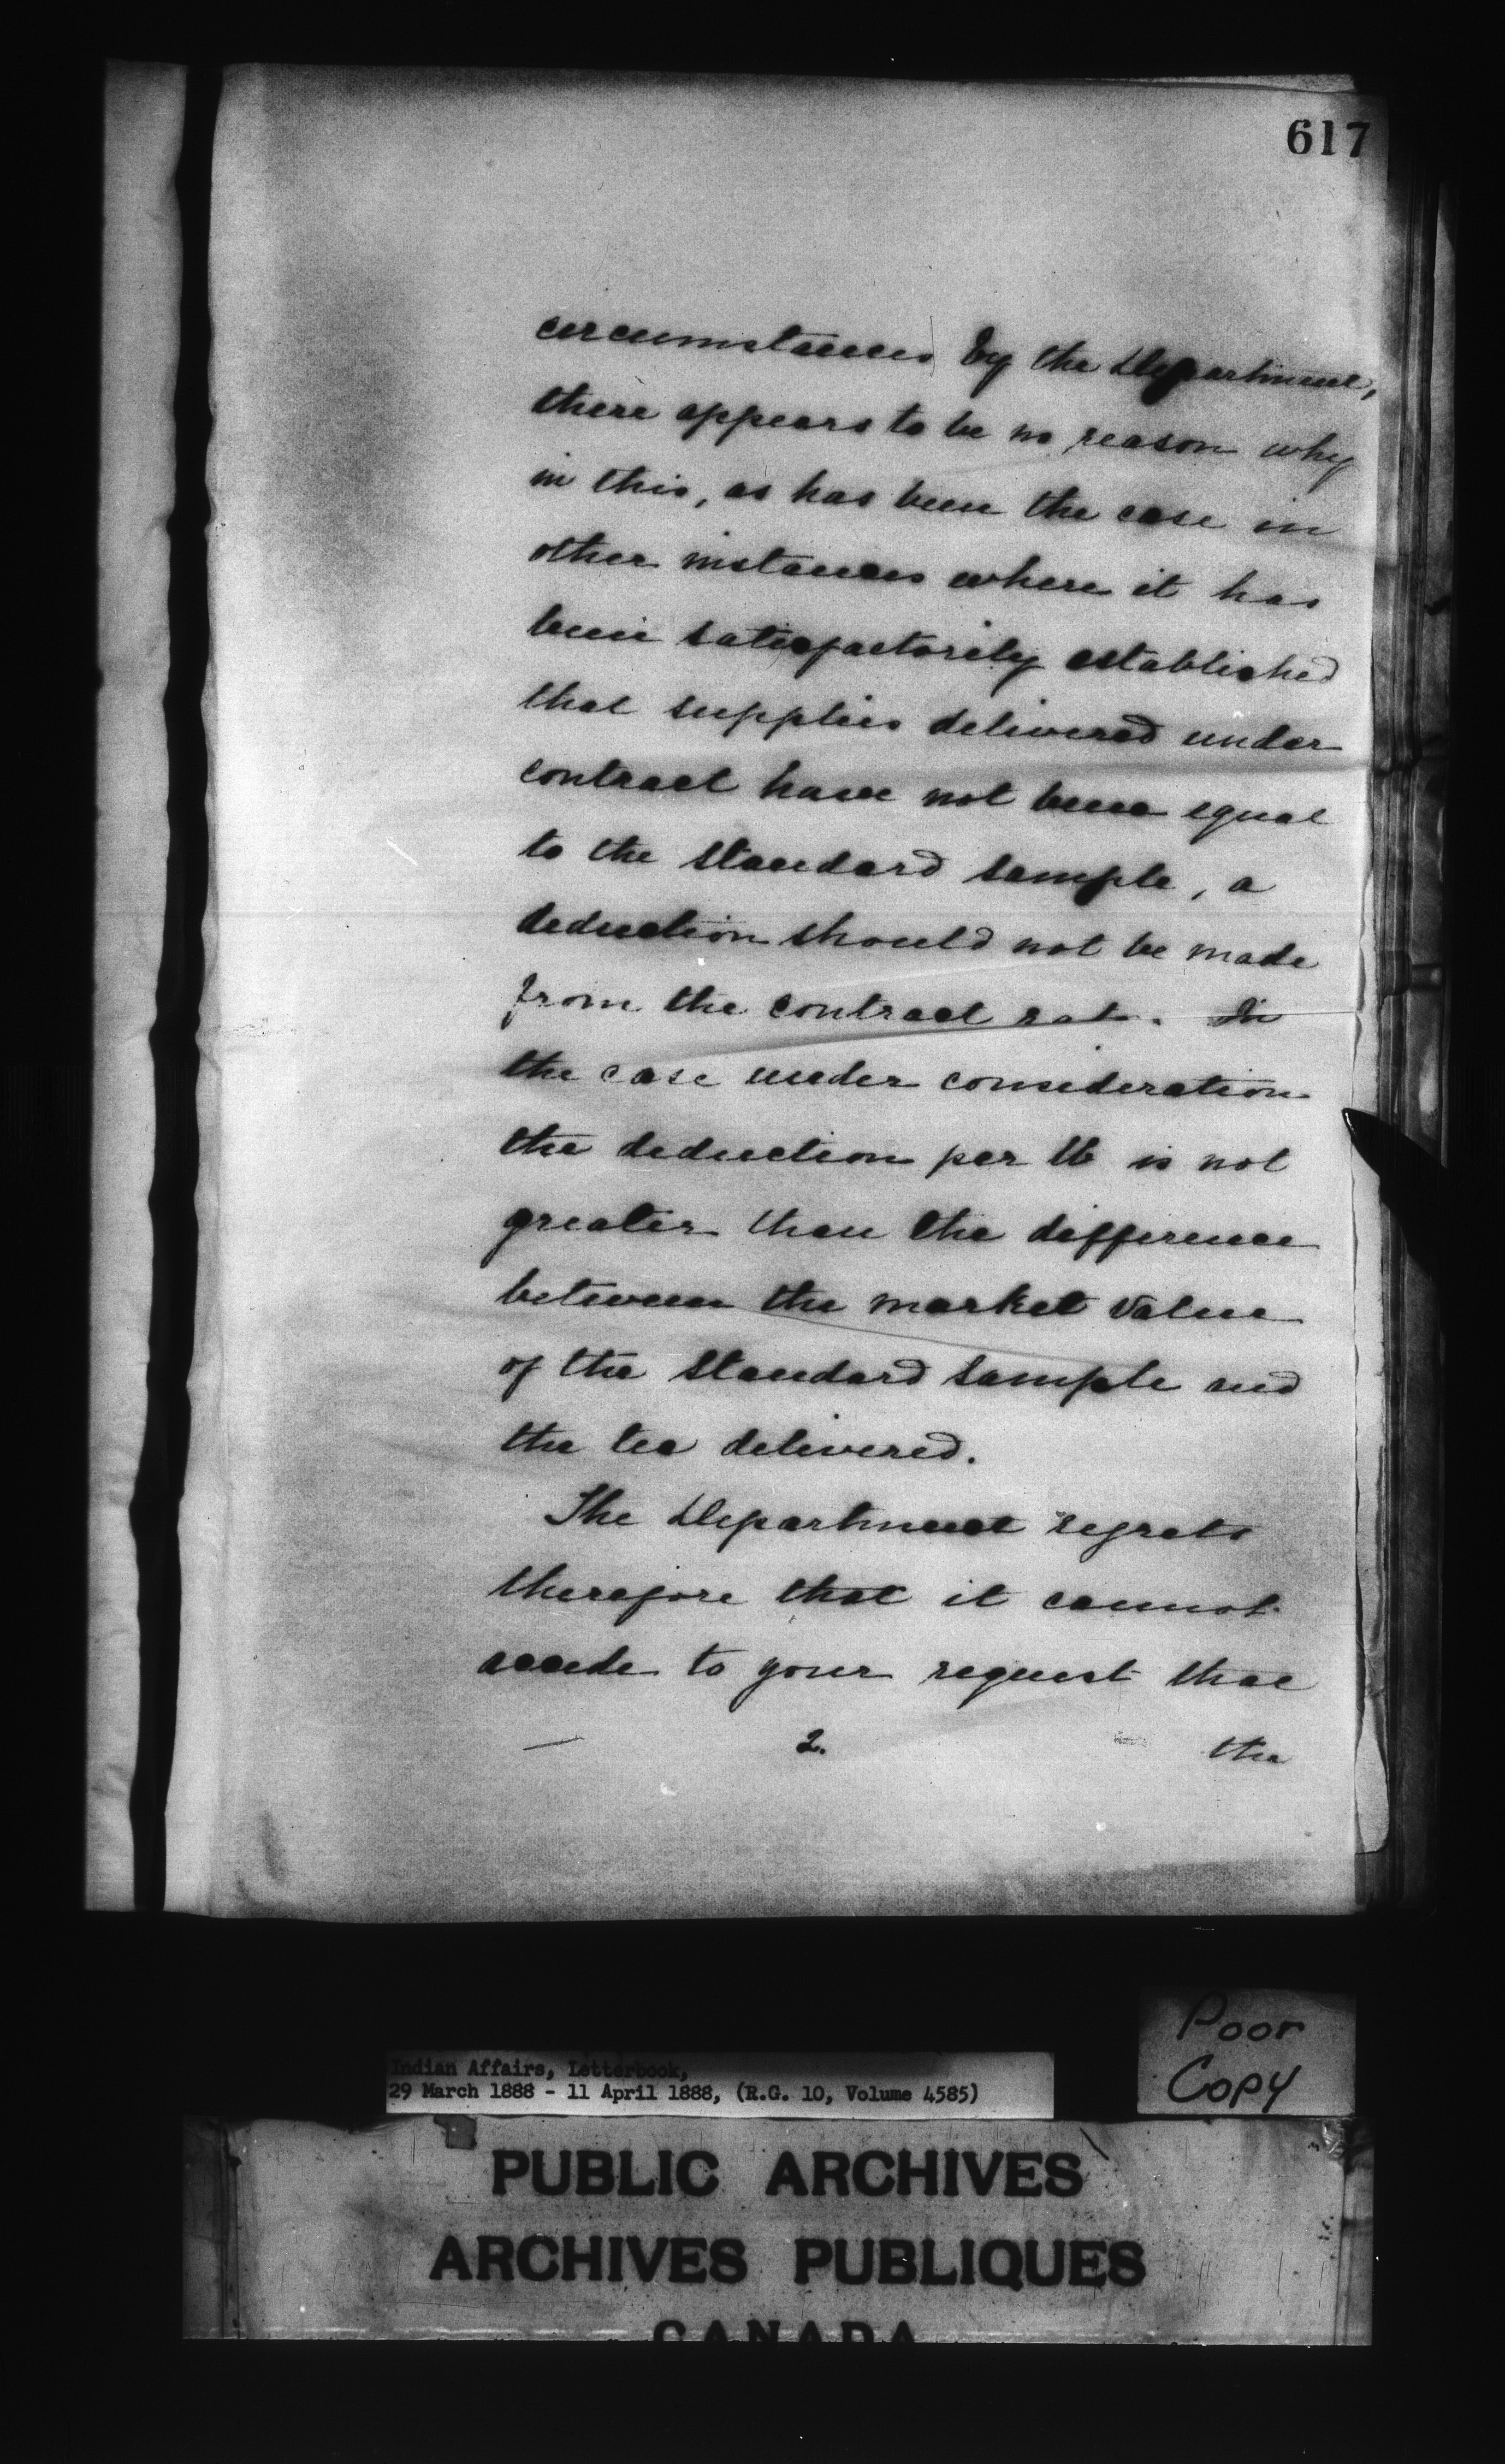 617
circumstances by the Department,
there appears to be no reason why
in this, as has been the case in
other instances where it has
been satisfactorily established
that supplies delivered under
contract have not been equal
to the standard sample, a
deduction should not be made
from the contract rate. In
the case under consideration
the deduction per lb is not
greater than the difference
between the market value
of the standard sample and
the tea delivered.
The Department regrets
therefore that it cannot
accede to your request that
2. the
Poor
Copy
Indian Affairs, Letterbook,
29 March 1888 - 11 April 1888, (R.G. 10, Volume 4585)
PUBLIC ARCHIVES
ARCHIVES PUBLIQUES
CANADA